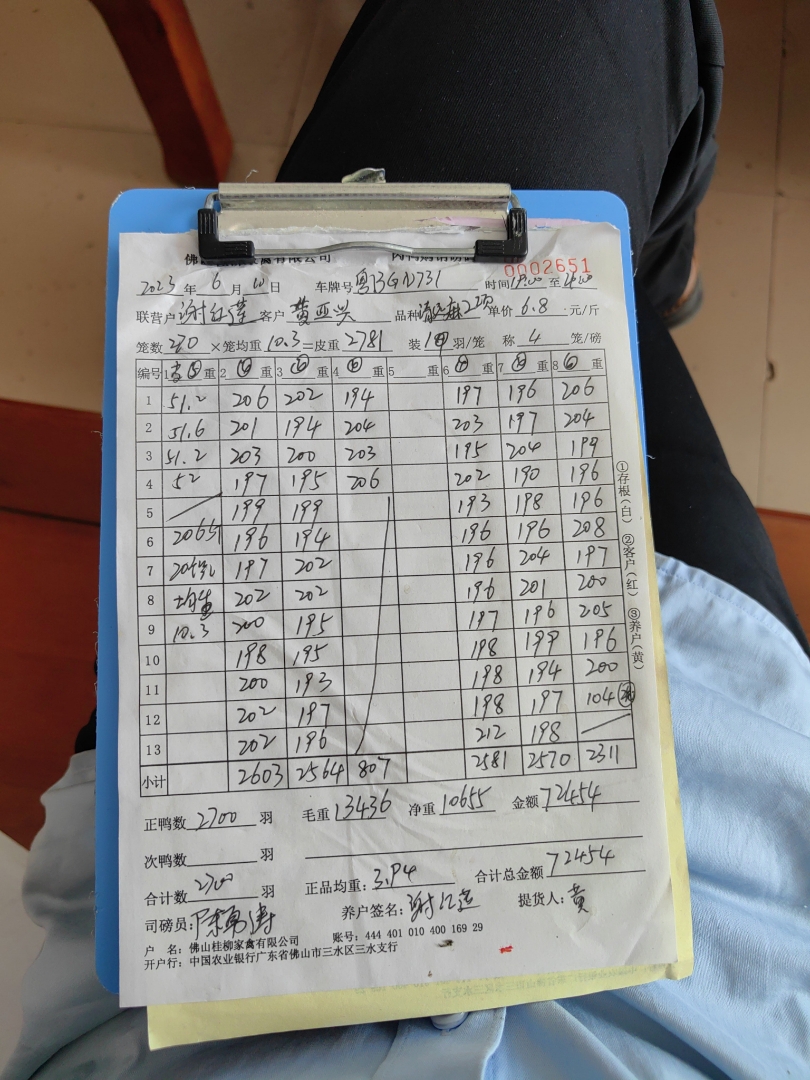 禽有限公司
0002651
2023 年 6 月 10 日 车牌号 粤BGN731 时间 至
联营户 谢红莲 客户 黄亚兴 品种 单价 6.8 元/斤
笼数 270 ×笼均重 10.3 =皮重 2781 装 10 羽/笼 称 4 笼/磅
编号 1 重 2 重 3 重 4 重 5 重 6 重 7 重 8 重
1 51.2 206 202 194 197 196 206
2 51.6 201 194 204 203 197 204
3 51.2 203 200 203 195 204 199
4 52 197 195 206 202 190 196
5 199 199 193 198 196
6 206 196 194 196 196 208
7 197 202 196 204 197
8 202 202 196 201 200
9 10.3 200 195 197 196 205
10 198 195 198 199 196
11 200 193 198 194 200
12 202 197 198 197 104
13 202 196 212 198
小计 2603 2564 807 2581 2570 2311
①存根(白) ②客户(红) ③养户(黄)
正鸭数 2700 羽 毛重 13436 净重 10655 金额 72454
次鸭数 羽
合计数 2700 羽 正品均重: 3.94 合计总金额 72454
司磅员: 养户签名: 谢红莲 提货人: 黄
户 名: 佛山桂柳家禽有限公司 账号: 444 401 010 400 169 29
开户行: 中国农业银行广东省佛山市三水区三水支行